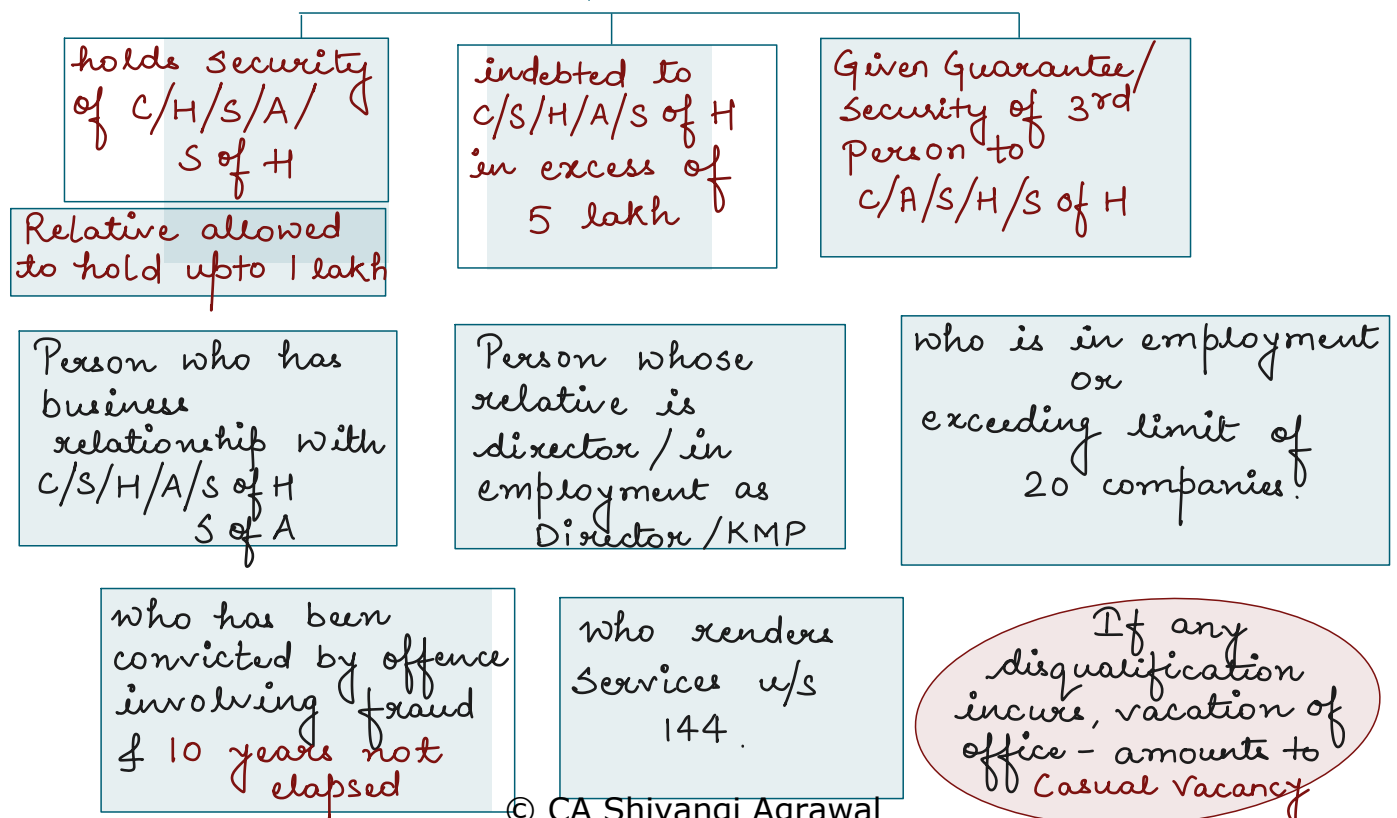 holds security
of C/H/S/A/
S of H
Relative allowed
to hold upto 1 lakh
indebted to
C/S/H/A/S of H
in excess of
5 lakh
Given Guarantee/
Security of 3rd
Person to
C/A/S/H/S of H
Person who has
business
relationship with
C/S/H/A/S of H
S of A
Person whose
relative is
director / in
employment as
Director /KMP
who is in employment
or
exceeding limit of
20 companies.
who has been
convicted by offence
involving fraud
& 10 years not
elapsed
who renders
Services u/s
144.
If any
disqualification
incurs, vacation of
office - amounts to
Casual Vacancy
© CA Shivangi Agrawal